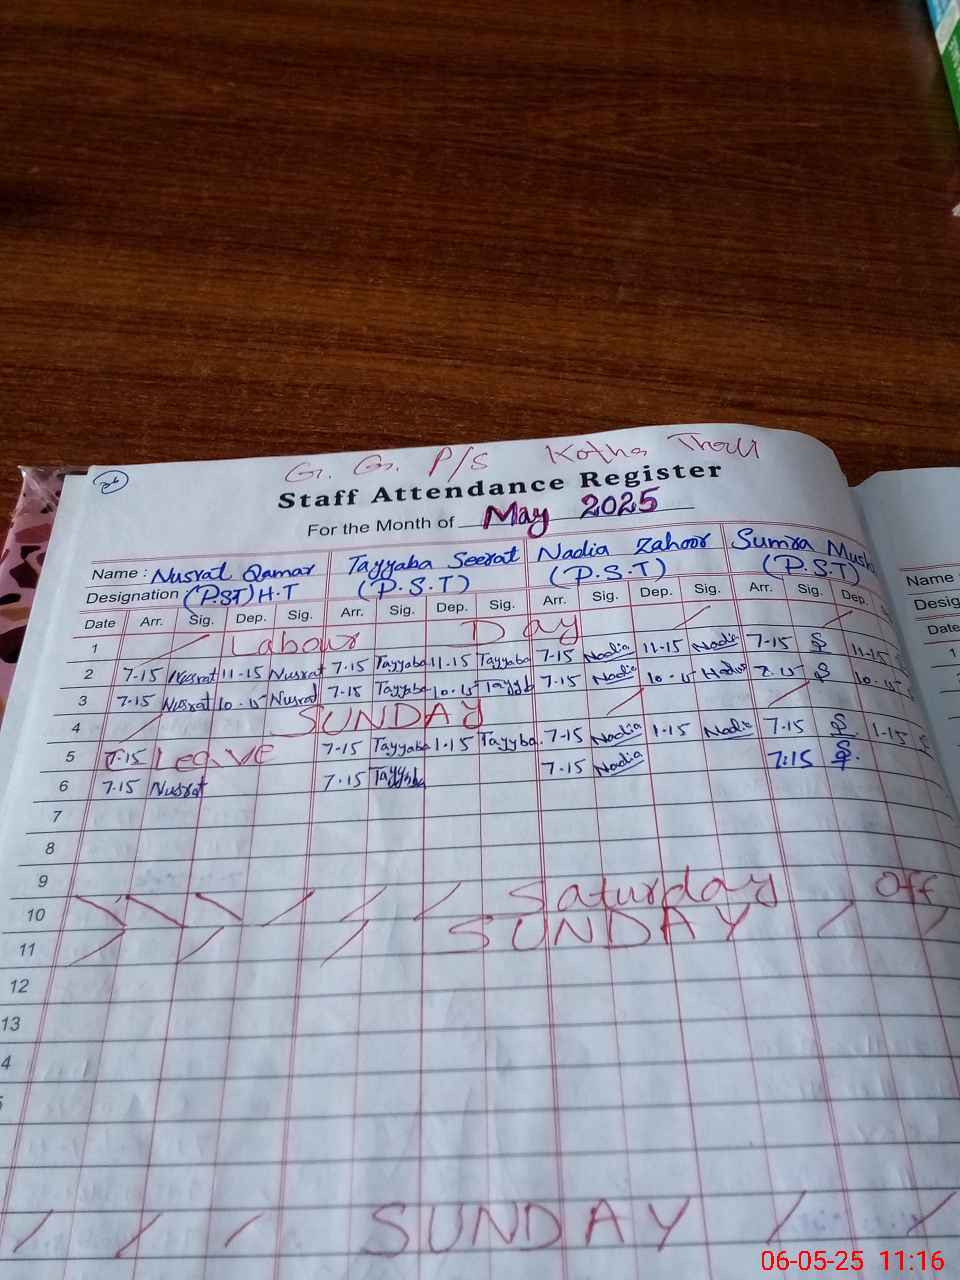 G. G. P/S Kotha Thali
Staff Attendance Register
For the Month of May 2025
Name : Nusrat Qamar Tayyaba Seerat Nadia Zahoor Sumra Mush
Designation (P.ST) H.T (P.S.T) (P.S.T) (P.S.T)
Date Arr. Sig. Dep. Sig. Arr. Sig. Dep. Sig. Arr. Sig. Dep. Sig. Arr. Sig. Dep. S
1 Labour Day
2 7-15 Nusrat 11-15 Nusrat 7-15 Tayyaba 11-15 Tayyaba 7-15 Nadia 11-15 Nadia 7-15 11-15
3 7-15 Nusrat 10-15 Nusrat 7-15 Tayyaba 10-15 Tayyb 7-15 Nadia 10-15 Nadia 7-15 10-15
4 SUNDAY
5 7-15 Leave 7-15 Tayyaba 1-15 Tayyaba 7-15 Nadia 1-15 Nadia 7-15 1-15
6 7-15 Nusrat 7-15 Tayyaba 7-15 Nadia 7:15
7
8
9
10 Saturday Off
11 SUNDAY
12
13
4
SUNDAY
Name
Desig
Date
1
06-05-25 11:16